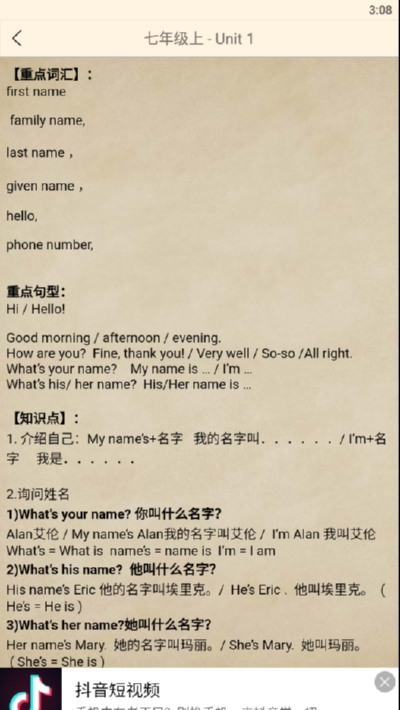 3:08
七年级上 - Unit 1
【重点词汇】：
first name
family name,
last name ，
given name ，
hello,
phone number,
重点句型：
Hi / Hello!
Good morning / afternoon / evening.
How are you?  Fine, thank you! / Very well / So-so /All right.
What's your name?    My name is ... / I'm ...
What's his/ her name?  His/Her name is ...
【知识点】：
1. 介绍自己：My name's+名字   我的名字叫．．．．．．/ I'm+名
字    我是．．．．．．
2.询问姓名
1)What's your name? 你叫什么名字?
Alan艾伦 / My name's Alan我的名字叫艾伦 /  I'm Alan 我叫艾伦
What's = What is  name's = name is  I'm = I am
2)What's his name?  他叫什么名字?
His name's Eric 他的名字叫埃里克。/  He's Eric .  他叫埃里克。 (
He's = He is )
3)What's her name?她叫什么名字?
Her name's Mary.  她的名字叫玛丽。/ She's Mary.  她叫玛丽。
( She's = She is )
抖音短视频